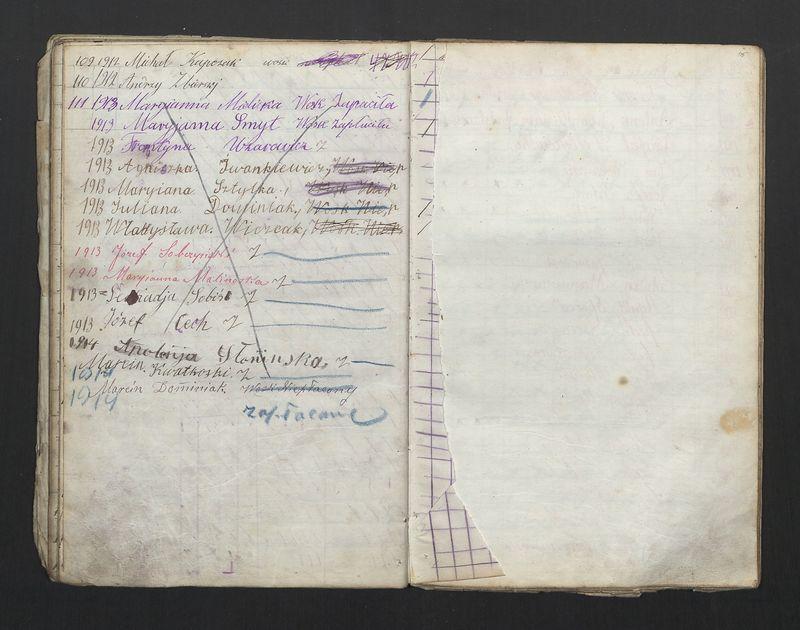 109 1912 Michał Kapczak
110 1912 Andrzy Zbierzy
111 1913 Maryianna Molicka Wosk Zapaciła
1913 Maryiama Smyt Wosk zaplaciła
1913
1913 Agnizka Iwankiewicz, Wosk Niep
1913 Maryiana Sztylka, Wosk Niep
1913 Juliana Dominiak, Wosk Niep
1913 Władysława Wiozcak, Wosk Niep
1913 Józef Sobczyński Z
1913 Maryianna Malinoska Z
1913 Sobis Z
1913 Józef Cech Z
1914 Apolonja Słonińska, Z
1914 Marcin Kwatkoski Z
1914 Marcin Dominiak Wosk Niepłacony
zapłacone